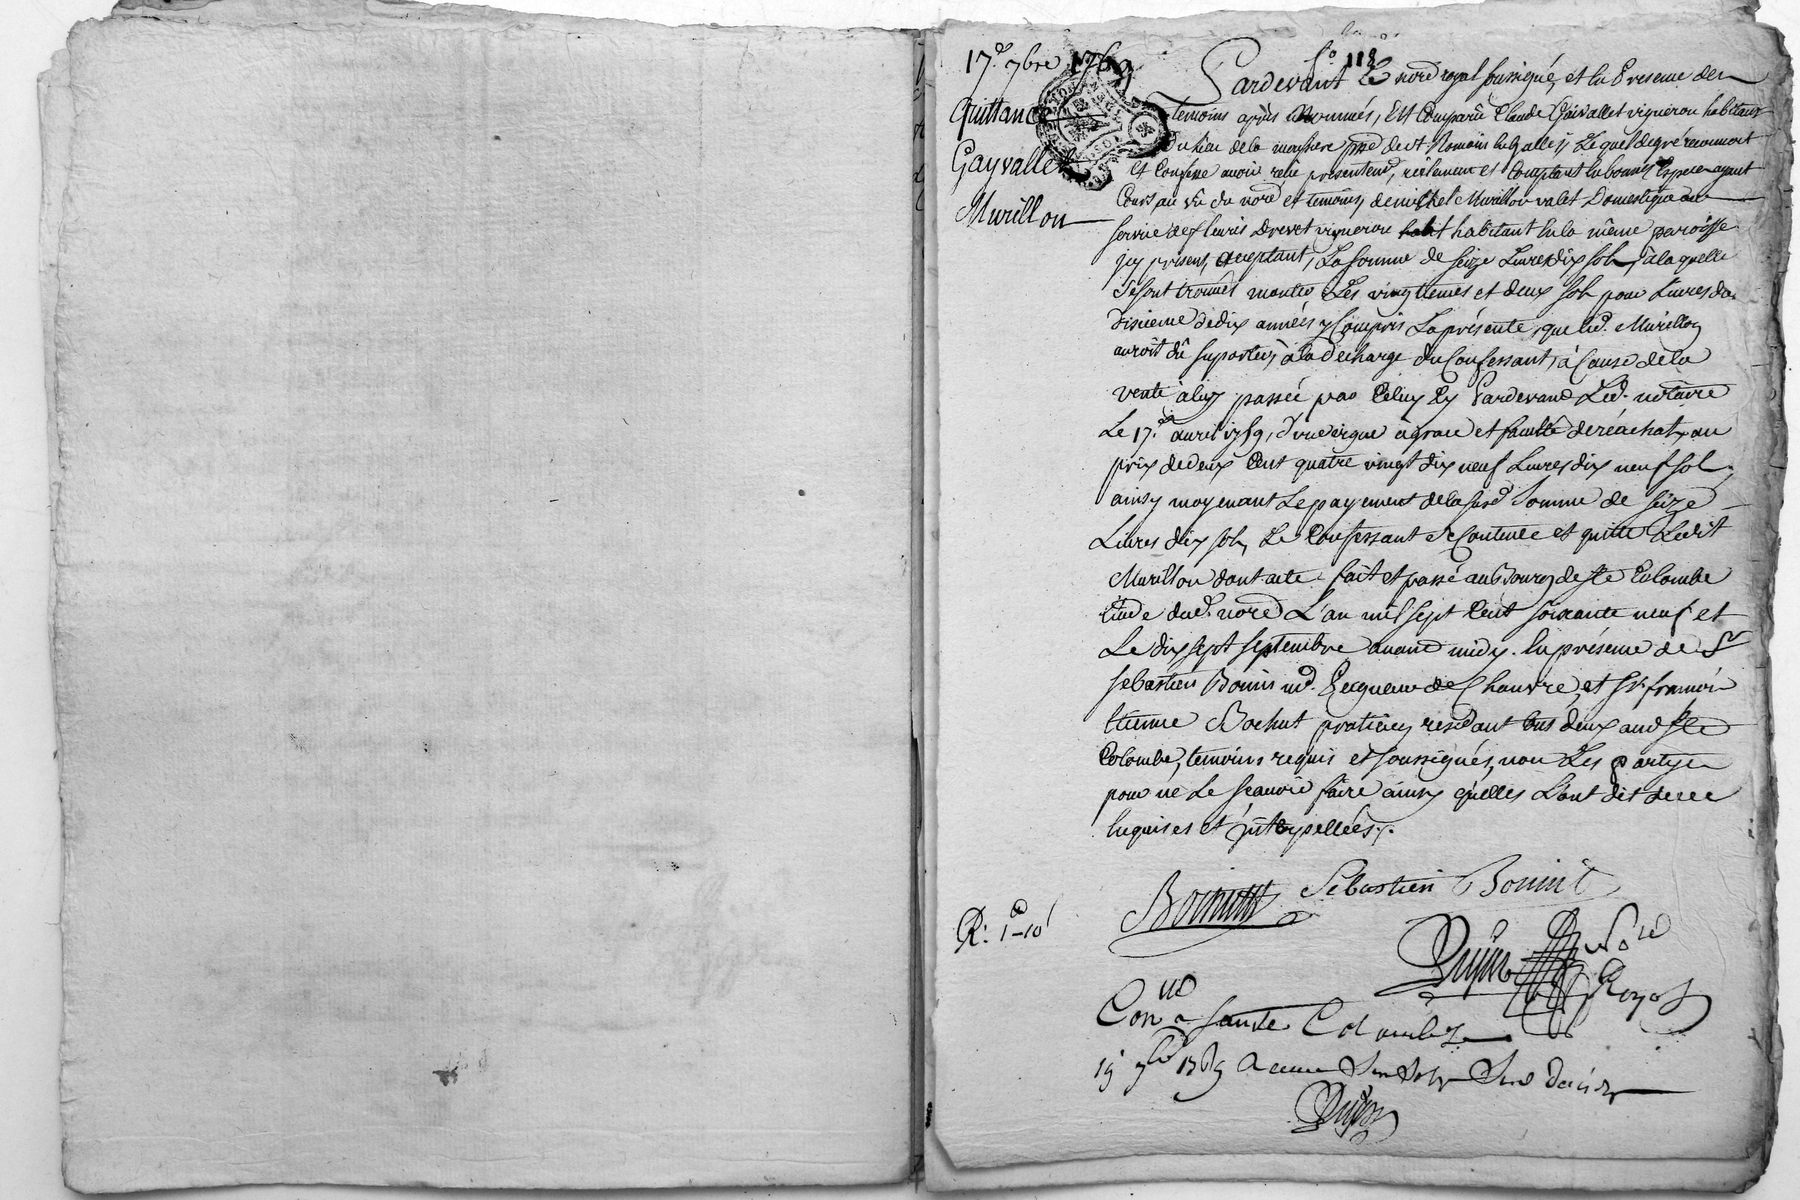 fo 118
17e 7bre 1769
Quittance
Gayvallet
Murillon
Pardevant Le nore royal soussigné, et en Presence des
temoins après Nommés, Est Comparu Claude Gaivallet vigneron habitant
du lieu de la prse de st Romain en Galley Lequel de gré reconnoit
Et Confesse avoir reçu présentemt, réelement et Comptant en bonnes Especes ayant
Cours, au vû du nore et temoins, de michel Murillon valet Domestique au
service de fleuris Drevet vigneron habitant en la même paroisse
icy present, acceptant, La somme de seize Livres dix sols, à la quelle
se sont trouvés monter Les vingtiemes et deux sols pour Livres du
dixieme de dix années y Compris La présente, que led. Murillon
auroit dû suporter, à la decharge du Confessant, à Cause de la
vente à luy passée par Celuy Cy Pardevant Led. notaire
Le 17e avril 1759, d'une vigne à grace et faculté de réachat, au
prix de deux Cent quatre vingt dix neuf Livres dix neuf sols,
ainsy moyenant Le payement de la susd. Somme de seize
Livres dix sols, Le Confessant se Contente et quitte Ledit
Murillon dont acte. fait et passé au Bourg de Ste Colombe
Etude dud. nore L'an mil sept Cent soixante neuf et
Le dix sept septembre avant midy. En présence de Sr
Sebastien Bonin md. Peigneur de Chanvre, et Sr. françois
Etienne Bochut praticien residant tous deux aud. Ste
Colombe, temoins requis et soussignés, non Les partyes
pour ne Le sçavoir faire ainsy qu'elles L'ont dit de ce
Enquises et interpellées.
Sebastien Bonint
R: 1-10s
nore
Royal
Conllé a Sainte Colombe
19 7bre 1769 Reçu